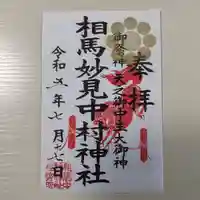 奉拝
御祭神 天之御中主大御神
相馬妙見中村神社
令和五年七月十七日